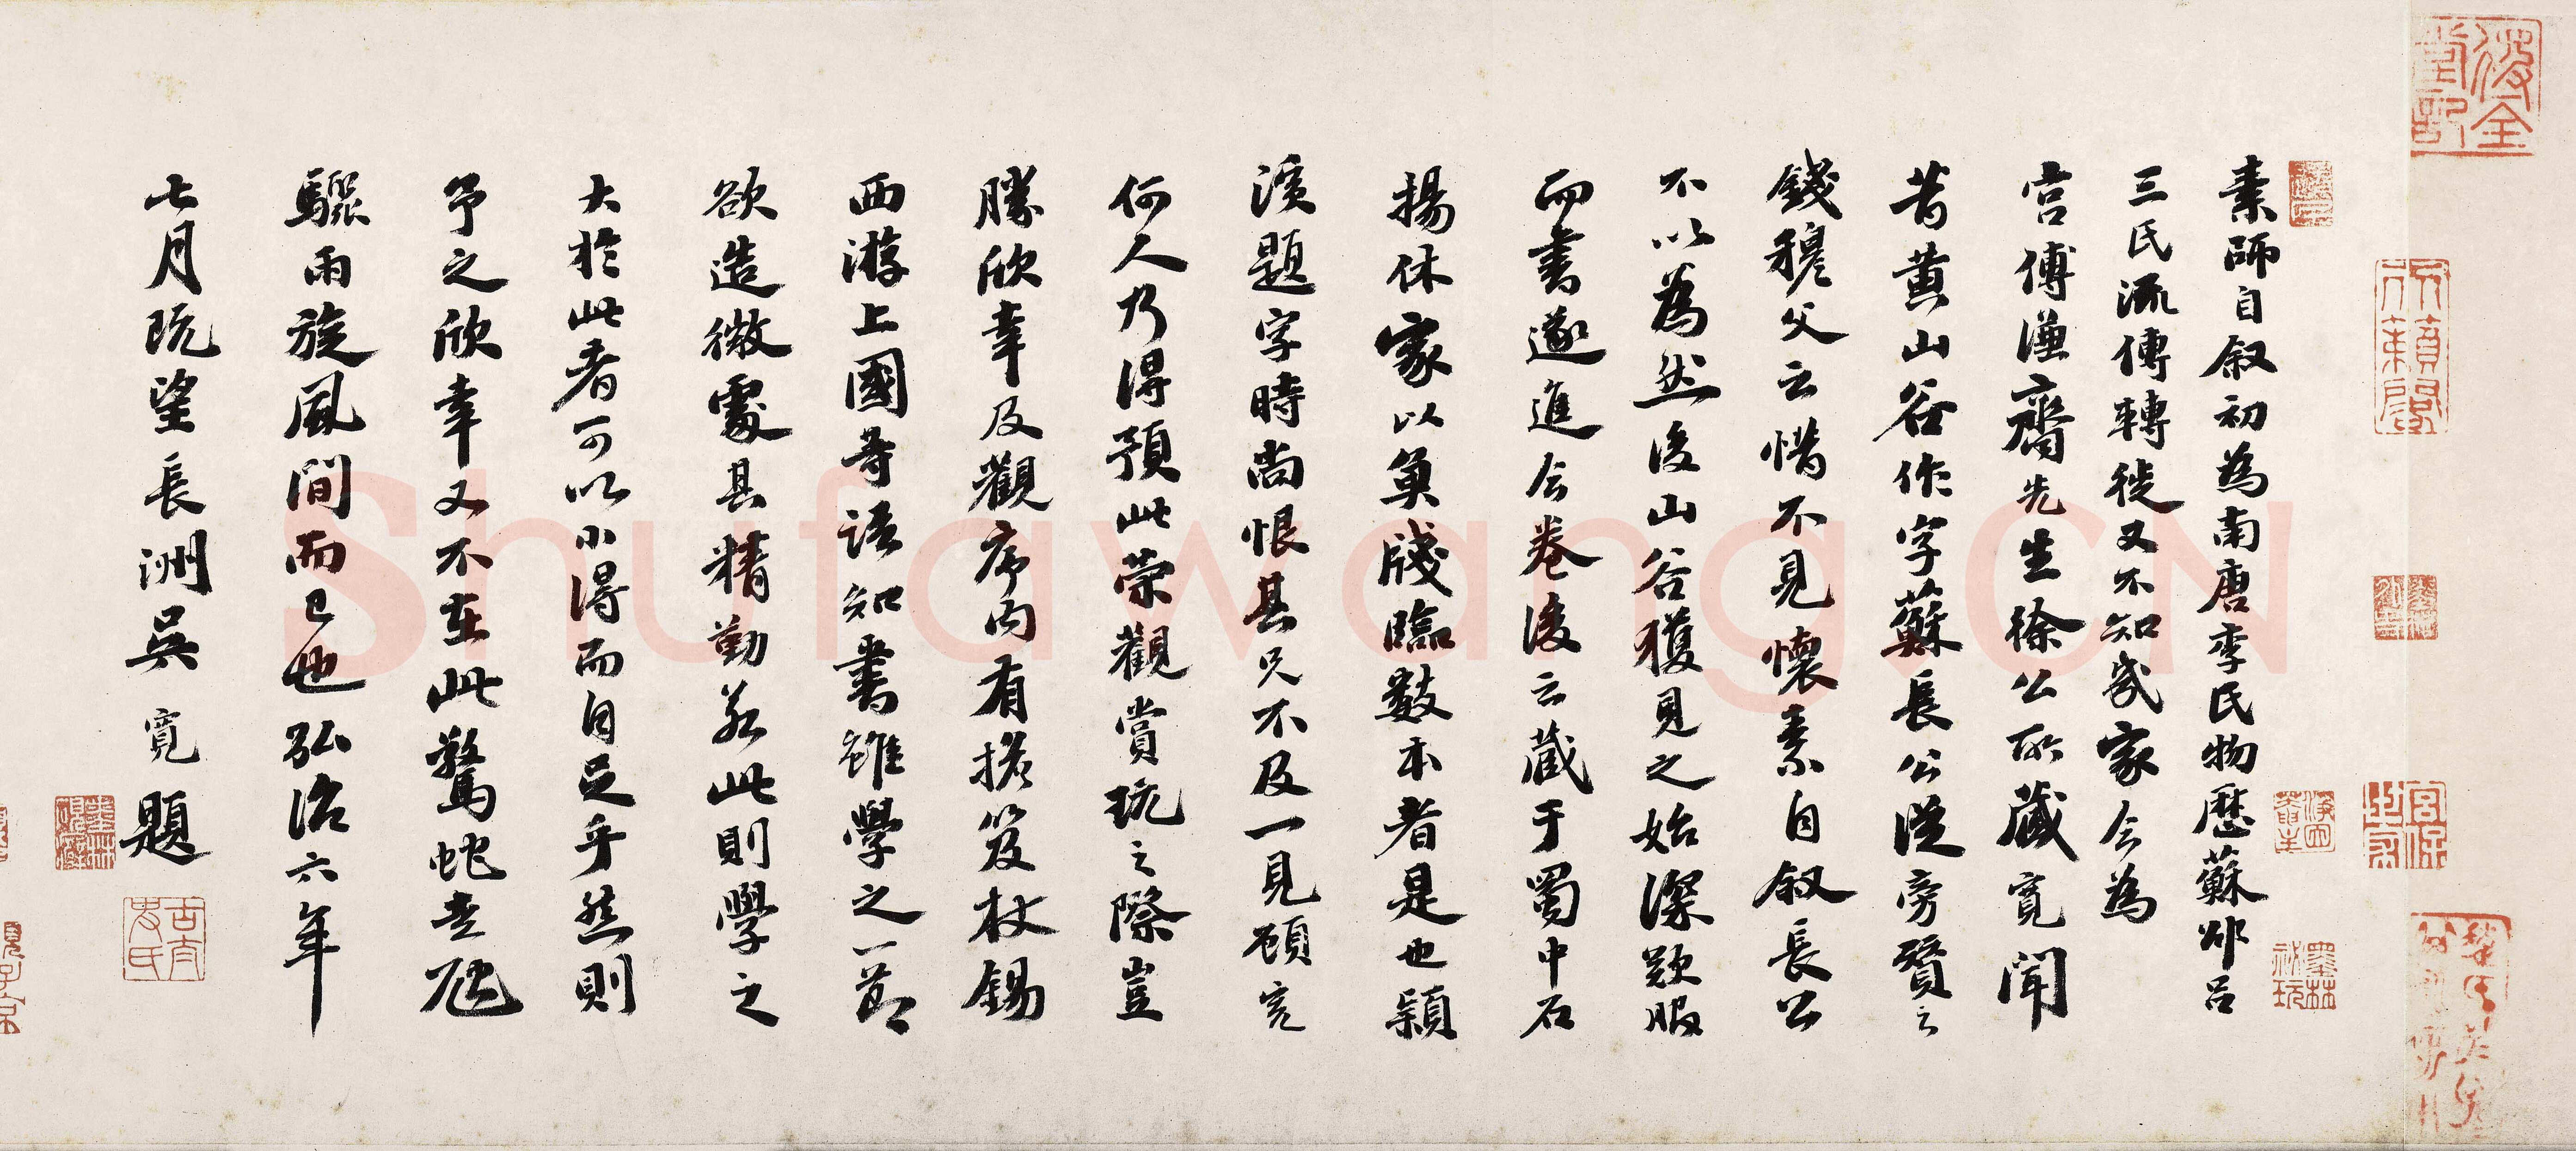 素師自叙初為南唐李氏物歷蘇邵呂
三氏流傳轉徙又不知幾家今為
宮傅謙齋先生徐公所藏寬聞
昔黃山谷作字蘇長公從旁贊之
錢穆父云惜不見懷素自叙長公
不以為然後山谷獲見之始深歎服
而書遂進今卷後云藏于蜀中石
揚休家以魚牋臨數本者是也潁
濱題字時尚恨其兄不及一見顧寬
何人乃得預此榮觀賞玩之際豈
勝欣幸及觀序內有擔笈杖錫
西游上國等語知書雖學之一節
欲造微處其精勤若此則學之
大於此者可以小得而自足乎然則
予之欣幸又不在此驚蛇走虺
驟雨旋風間而已也弘治六年
七月既望長洲吳寬題
古太史氏
Shufawang.CN